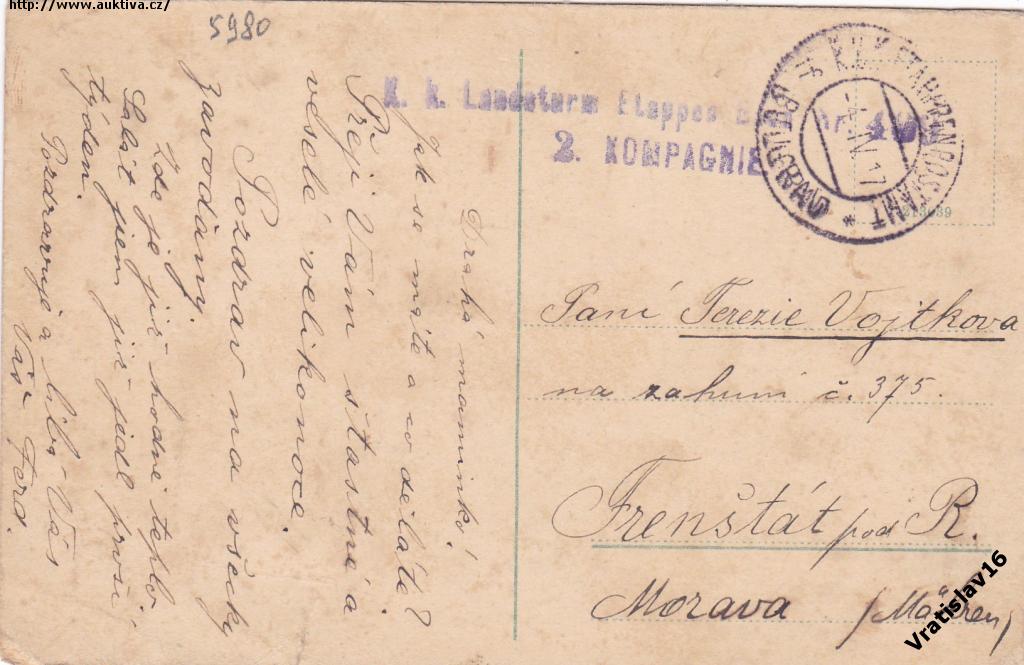 http://www.auktiva.cz/
5980
K. k. Landsturm Etappes
2. KOMPAGNIE
K.u.K. ETAPPENPOSTAMT
BELGRAD
IV. 17
Drahá maminko!
Jak se máte a co děláte?
Přeji Vám šťastné a
veselé velikonoce.
Pozdrav na všecky
zavodány.
Zde je již hodně teplo
Salát jsem již jedl první
týden.
Pozdravuje a líbá Vás
Váš Ferd.
Paní Terezie Vojtkova
na zahuní č. 375.
Frenštát pod R.
Morava (Mähren)
Vratislav16